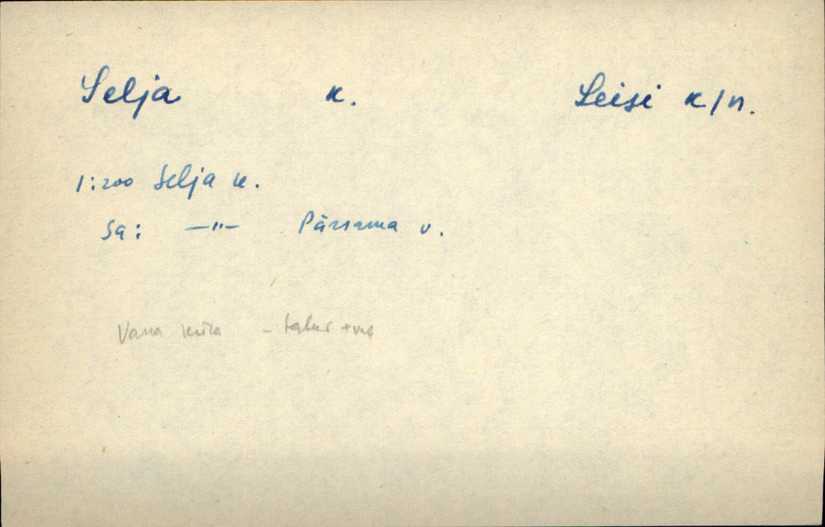 Selja k. Leisi k/n.
1:200 Selja k.
Sa: —"— Pärsama v.
Vana küla –